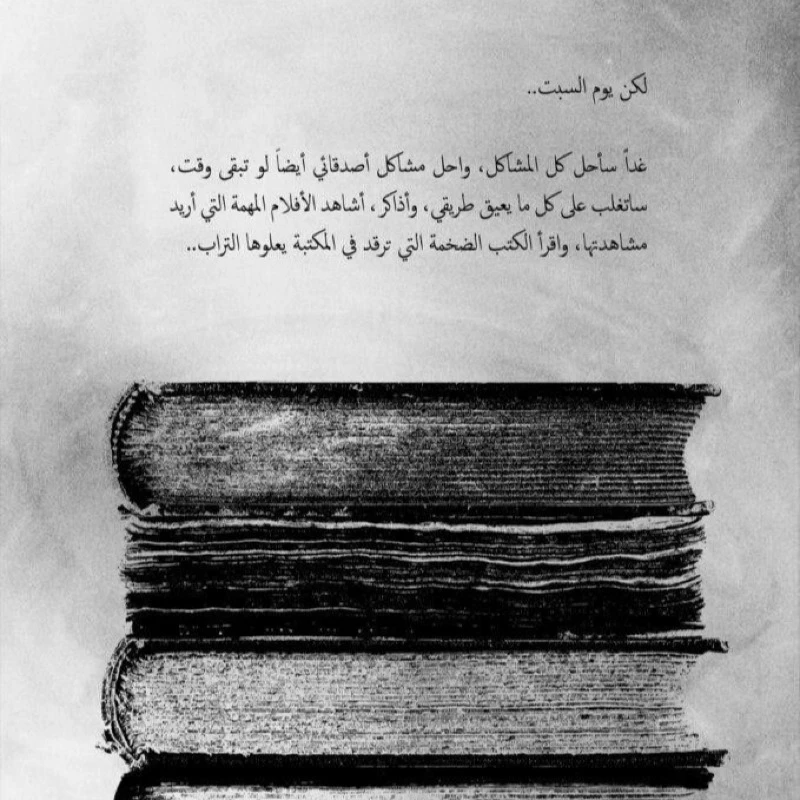 لكن يوم السبت..
غداً سأحل كل المشاكل، واحل مشاكل أصدقائي أيضاً لو تبقى وقت،
ساتغلب على كل ما يعيق طريقي، وأذاكر، أشاهد الأفلام المهمة التي أريد
مشاهدتها، واقرأ الكتب الضخمة التي ترقد في المكتبة يعلوها التراب..